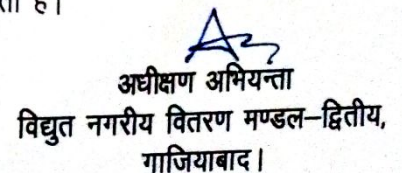 है।
अधीक्षण अभियन्ता
विद्युत नगरीय वितरण मण्डल–द्वितीय,
गाजियाबाद।